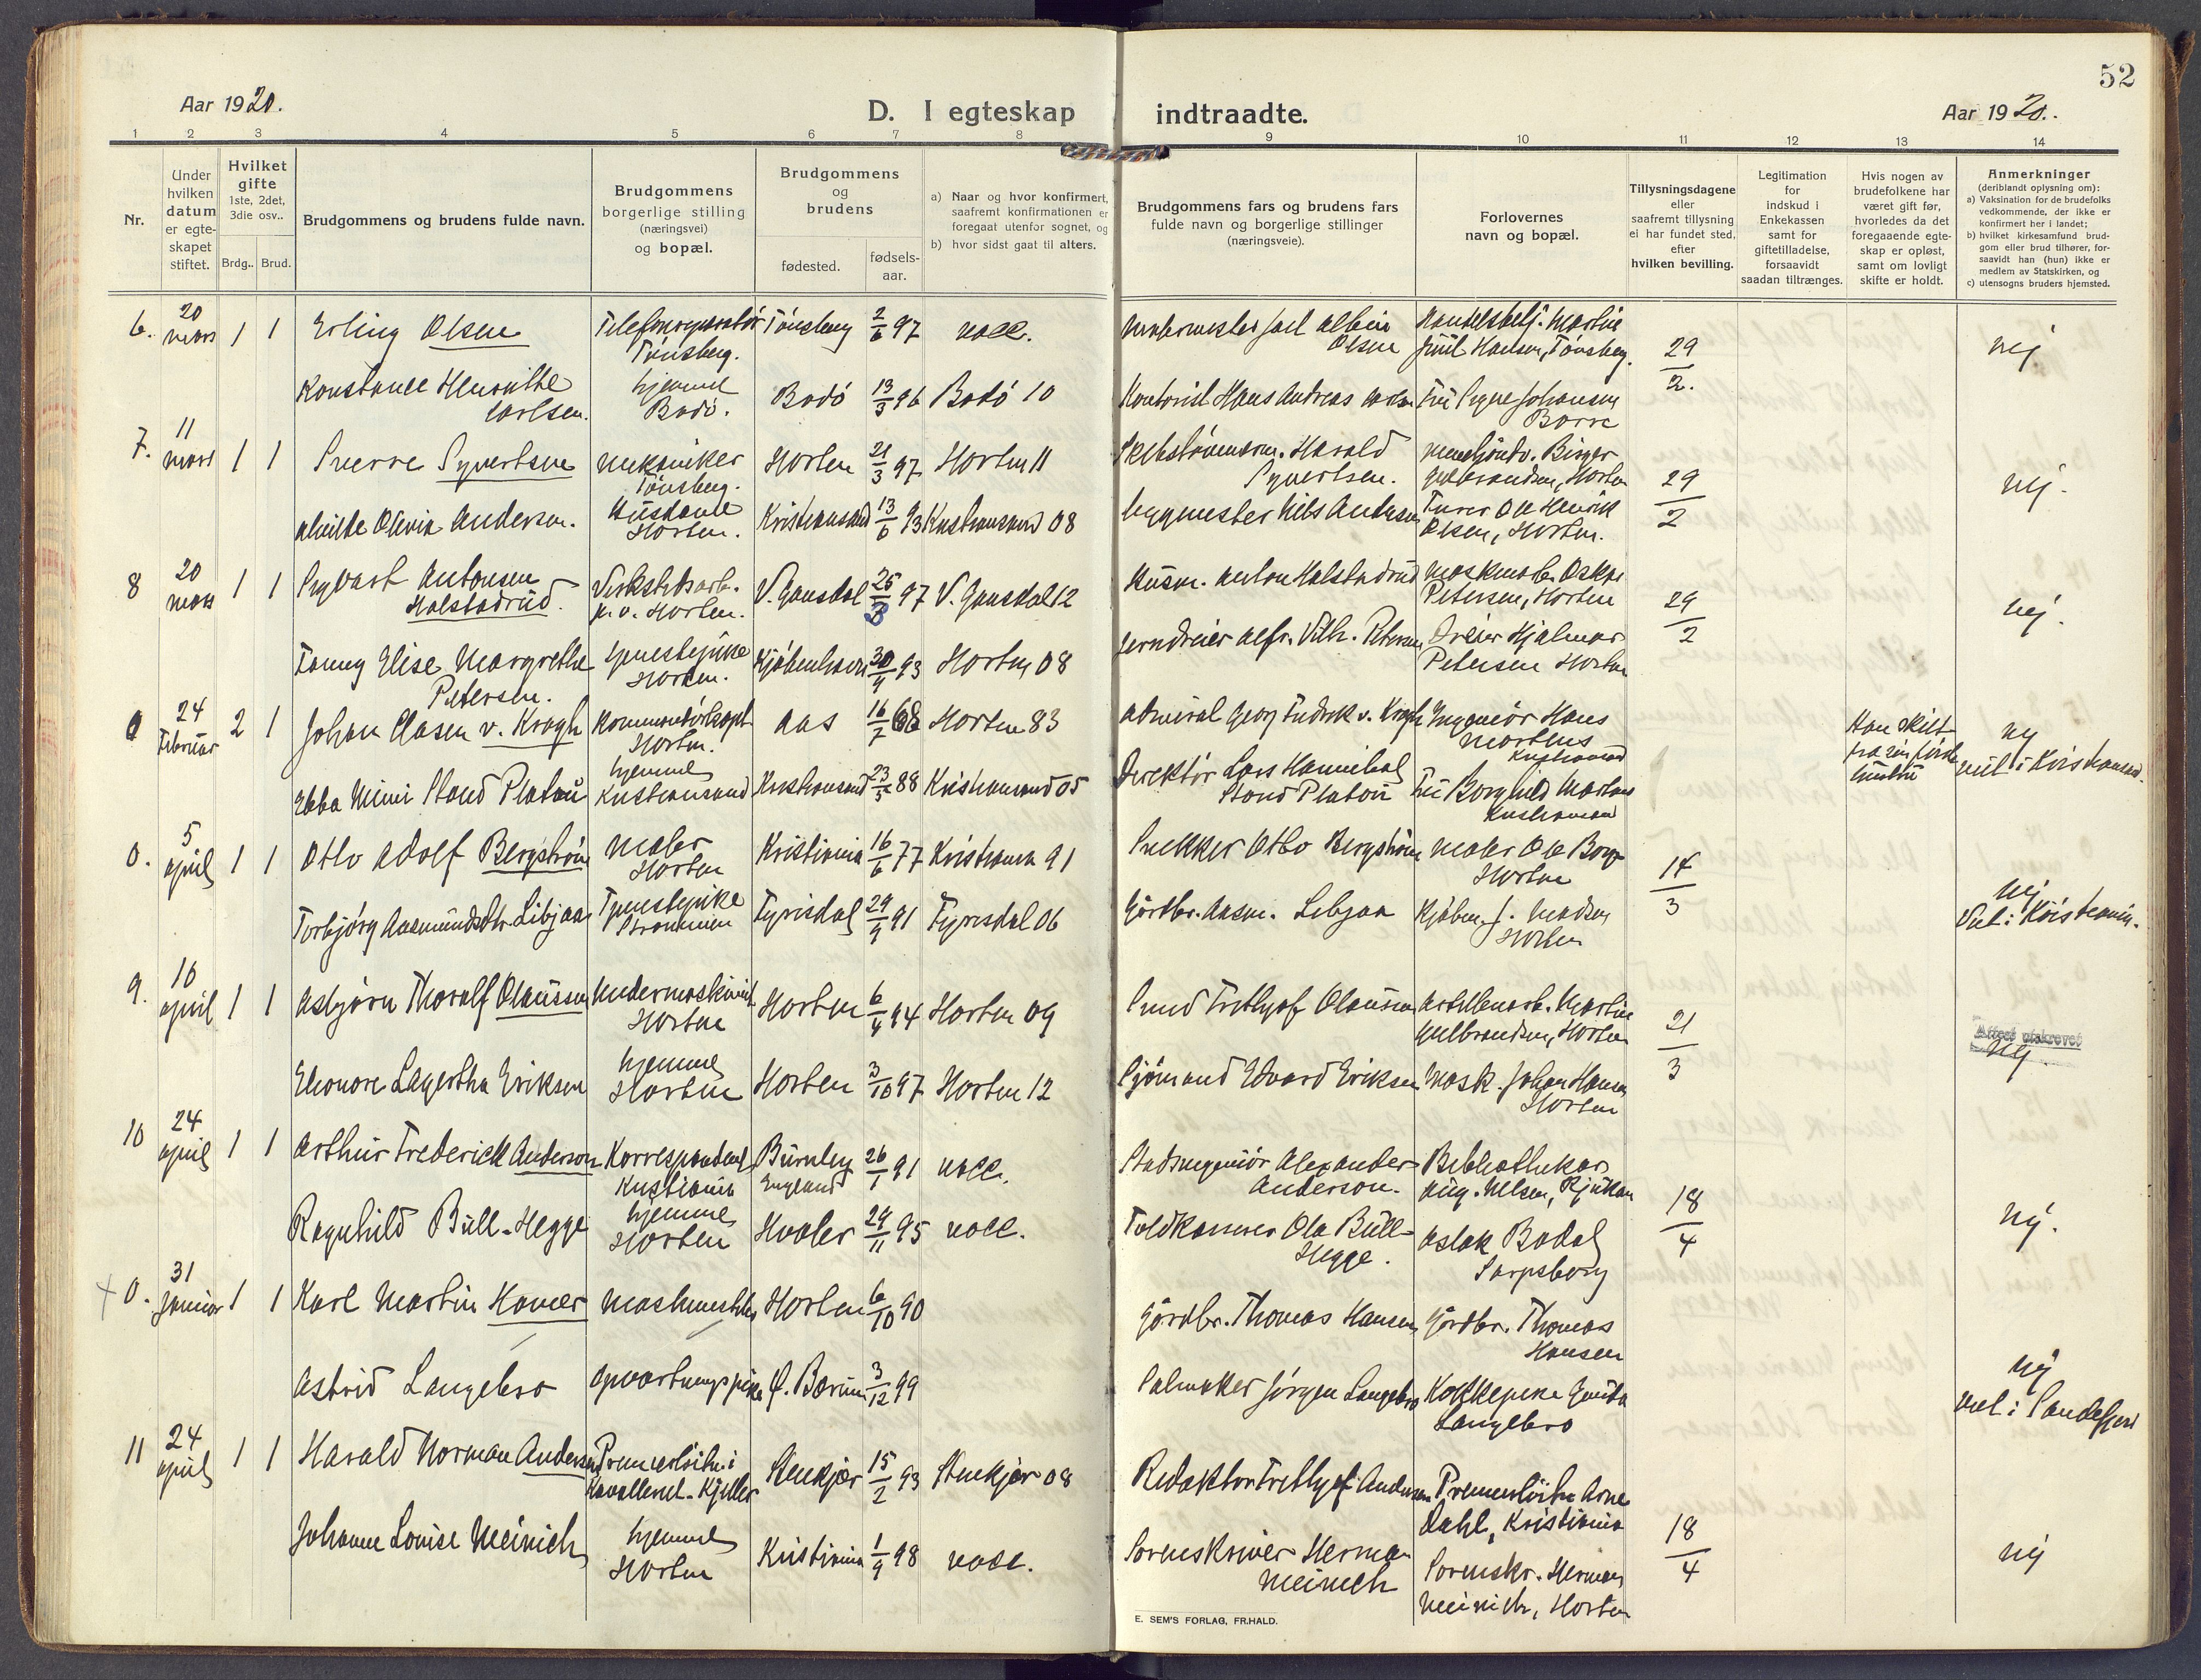 52
Aar 1920.
D. I egteskap indtraadte.
Aar 1920.
1 2 3 4 5 6 7 8 9 10 11 12 13 14
Nr.
Under
hvilken
datum
er egte-
skapet
stiftet.
Hvilket
gifte
1ste, 2det,
3die osv..
Brdg.. Brud.
Brudgommens og brudens fulde navn.
Brudgommens
borgerlige stilling
(næringsvei)
og bopæl.
Brudgommens
og
brudens
fødested.
fødsels-
aar.
a) Naar og hvor konfirmert,
saafremt konfirmationen er
foregaat utenfor sognet, og
b) hvor sidst gaat til alters.
Brudgommens fars og brudens fars
fulde navn og borgerlige stillinger
(næringsveie).
Forlovernes
navn og bopæl.
Tillysningsdagene
eller
saafremt tillysning
ei har fundet sted,
efter
hvilken bevilling.
Legitimation
for
indskud i
Enkekassen
samt for
giftetilladelse,
forsaavidt
saadan tiltrænges.
Hvis nogen av
brudefolkene har
været gift før,
hvorledes da det
foregaaende egte-
skap er opløst,
samt om lovligt
skifte er holdt.
Anmerkninger
(deriblandt oplysning om):
a) Vaksination for de brudefolks
vedkommende, der ikke er
konfirmert her i landet;
b) hvilket kirkesamfund brud-
gom eller brud tilhører, for-
saavidt han (hun) ikke er
medlem av Statskirken, og
c) utensogns bruders hjemsted.
6. 20 mars 1 1 Erling Olsen
Tønsberg.
Tønsberg 2/6 97 vacc.
Olsen
Juul Hansen, Tønsberg.
29/2.
nej
Konstance Henrikke
Carlsen.
hjemme
Bodø.
Bodø 13/3 96 Bodø 10
Kontorist Hans Andreas
Frk Signe Johansen
Borre
7. 11 mars 1 1 Sverre Syvertsen
mekaniker
Tønsberg.
Horten 21/3 97 Horten 11
Harald
Syvertsen.
Birger
Gulbrandsen, Horten
29/2
nej.
Alvilde Olevia Andersen.
Husdame
Horten.
Kristiansand 13/6 93 Kristiansand 08
Nils Andersen
Ole Henrik
Olsen, Horten.
8 20 mars 1 1 Sigvart Antonsen
Halstadrud.
Verkstedsarb.
k. v. Horten.
V. Gausdal 25/3 97 V. Gausdal 12
Husm. Anton Halstadrud
Oskar
Petersen, Horten
29/2
nej.
Fanny Elise Margrethe
Petersen.
tjenestepike
Horten.
Kjøbenhavn 30/9 93 Horten 08
Jerndreier Alfr. Vilh. Petersen
Dreier Hjalmar
Petersen Horten
0 24 Februar 2 1 Johan Clasen v. Krogh
Kommandørkapt.
Horten.
Aas 16/7 68 Horten 83
Admiral Georg Fredrik v. Krogh
Ingeniør Hans
Martens
Kristiansand
Han skilt
fra sin første
hustru
nej
viet i Kristiansand.
Ebba Mimi Stoud Platou
hjemme
Kristiansand
Kristiansand 23/5 88 Kristiansand 05
Direktør Lars Hannibal
Stoud Platou
Borghild Martens
Kristiansand
0. 5 april 1 1 Otto Adolf Bergstrøm
Maler
Horten
Kristiania 16/6 77 Kristiania 91
Snekker Otto Bergstrøm
Maler Ole Borge
Horten
14/3
nej
Viet i Kristiania.
Torbjørg Aasmundsdtr. Libjaa
Tjenestepike
Strømmen
Fyrisdal 29/9 91 Fyrisdal 06
Gårdbr. Aasm. Libjaa
Kjøbm. J. Madsen
Horten
9. 10 april 1 1 Asbjørn Thoralf Olaussen
Undermaskinist
Horten
Horten 6/4 94 Horten 09
Smed Frithjof Olaussen
Martin
Gulbrandsen, Horten
21/3
Attest utskrevet
nej.
Eleonore Lagertha Eriksen
hjemme
Horten
Horten 3/10 97 Horten 12
Sjømand Edvard Eriksen
Mask. Johan Hansen
Horten
10 24 april 1 1 Arthur Frederick Anderson
Korrespondent
Kristiania
Burnley
England
26/1 91 vacc.
Stadsingeniør Alexander
Anderson.
Bibliothekar
Aug. Nilsen, Rjukan
18/4
nej.
Ragnhild Bull-Hegge
hjemme
Horten
Hvaler 29/11 95 vacc.
Toldkasserer Ole Bull-
Hegge.
Aslak Bodal
Sarpsborg
0. 31 Januar 1 1 Karl Martin Hanser
Horten 6/10 90
Gårdbr. Thomas Hansen
Gårdbr. Thomas
Hansen
nej
viet i Sandefjord
Astrid Langebro
Opvartningspike
Ø. Bærum 3/12 99
Salmaker Jørgen Langebro
Kokkepike
Langebro
11 24 april 1 1 Harald Norman Andersen
Premierløitn. i
Kavalleriet - Kjeller
Stenkjær 15/2 93 Stenkjær 08
Redaktør Frithjof Andersen
Premierløitn Arne
Dahl, Kristiania
18/4
nej
Johanne Louise Meinich
hjemme
Horten
Kristiania 1/9 98 vacc.
Sorenskriver Herman
Meinich
Sorenskr. Herman
Meinich, Horten
E. SEM'S FORLAG, FR.HALD.